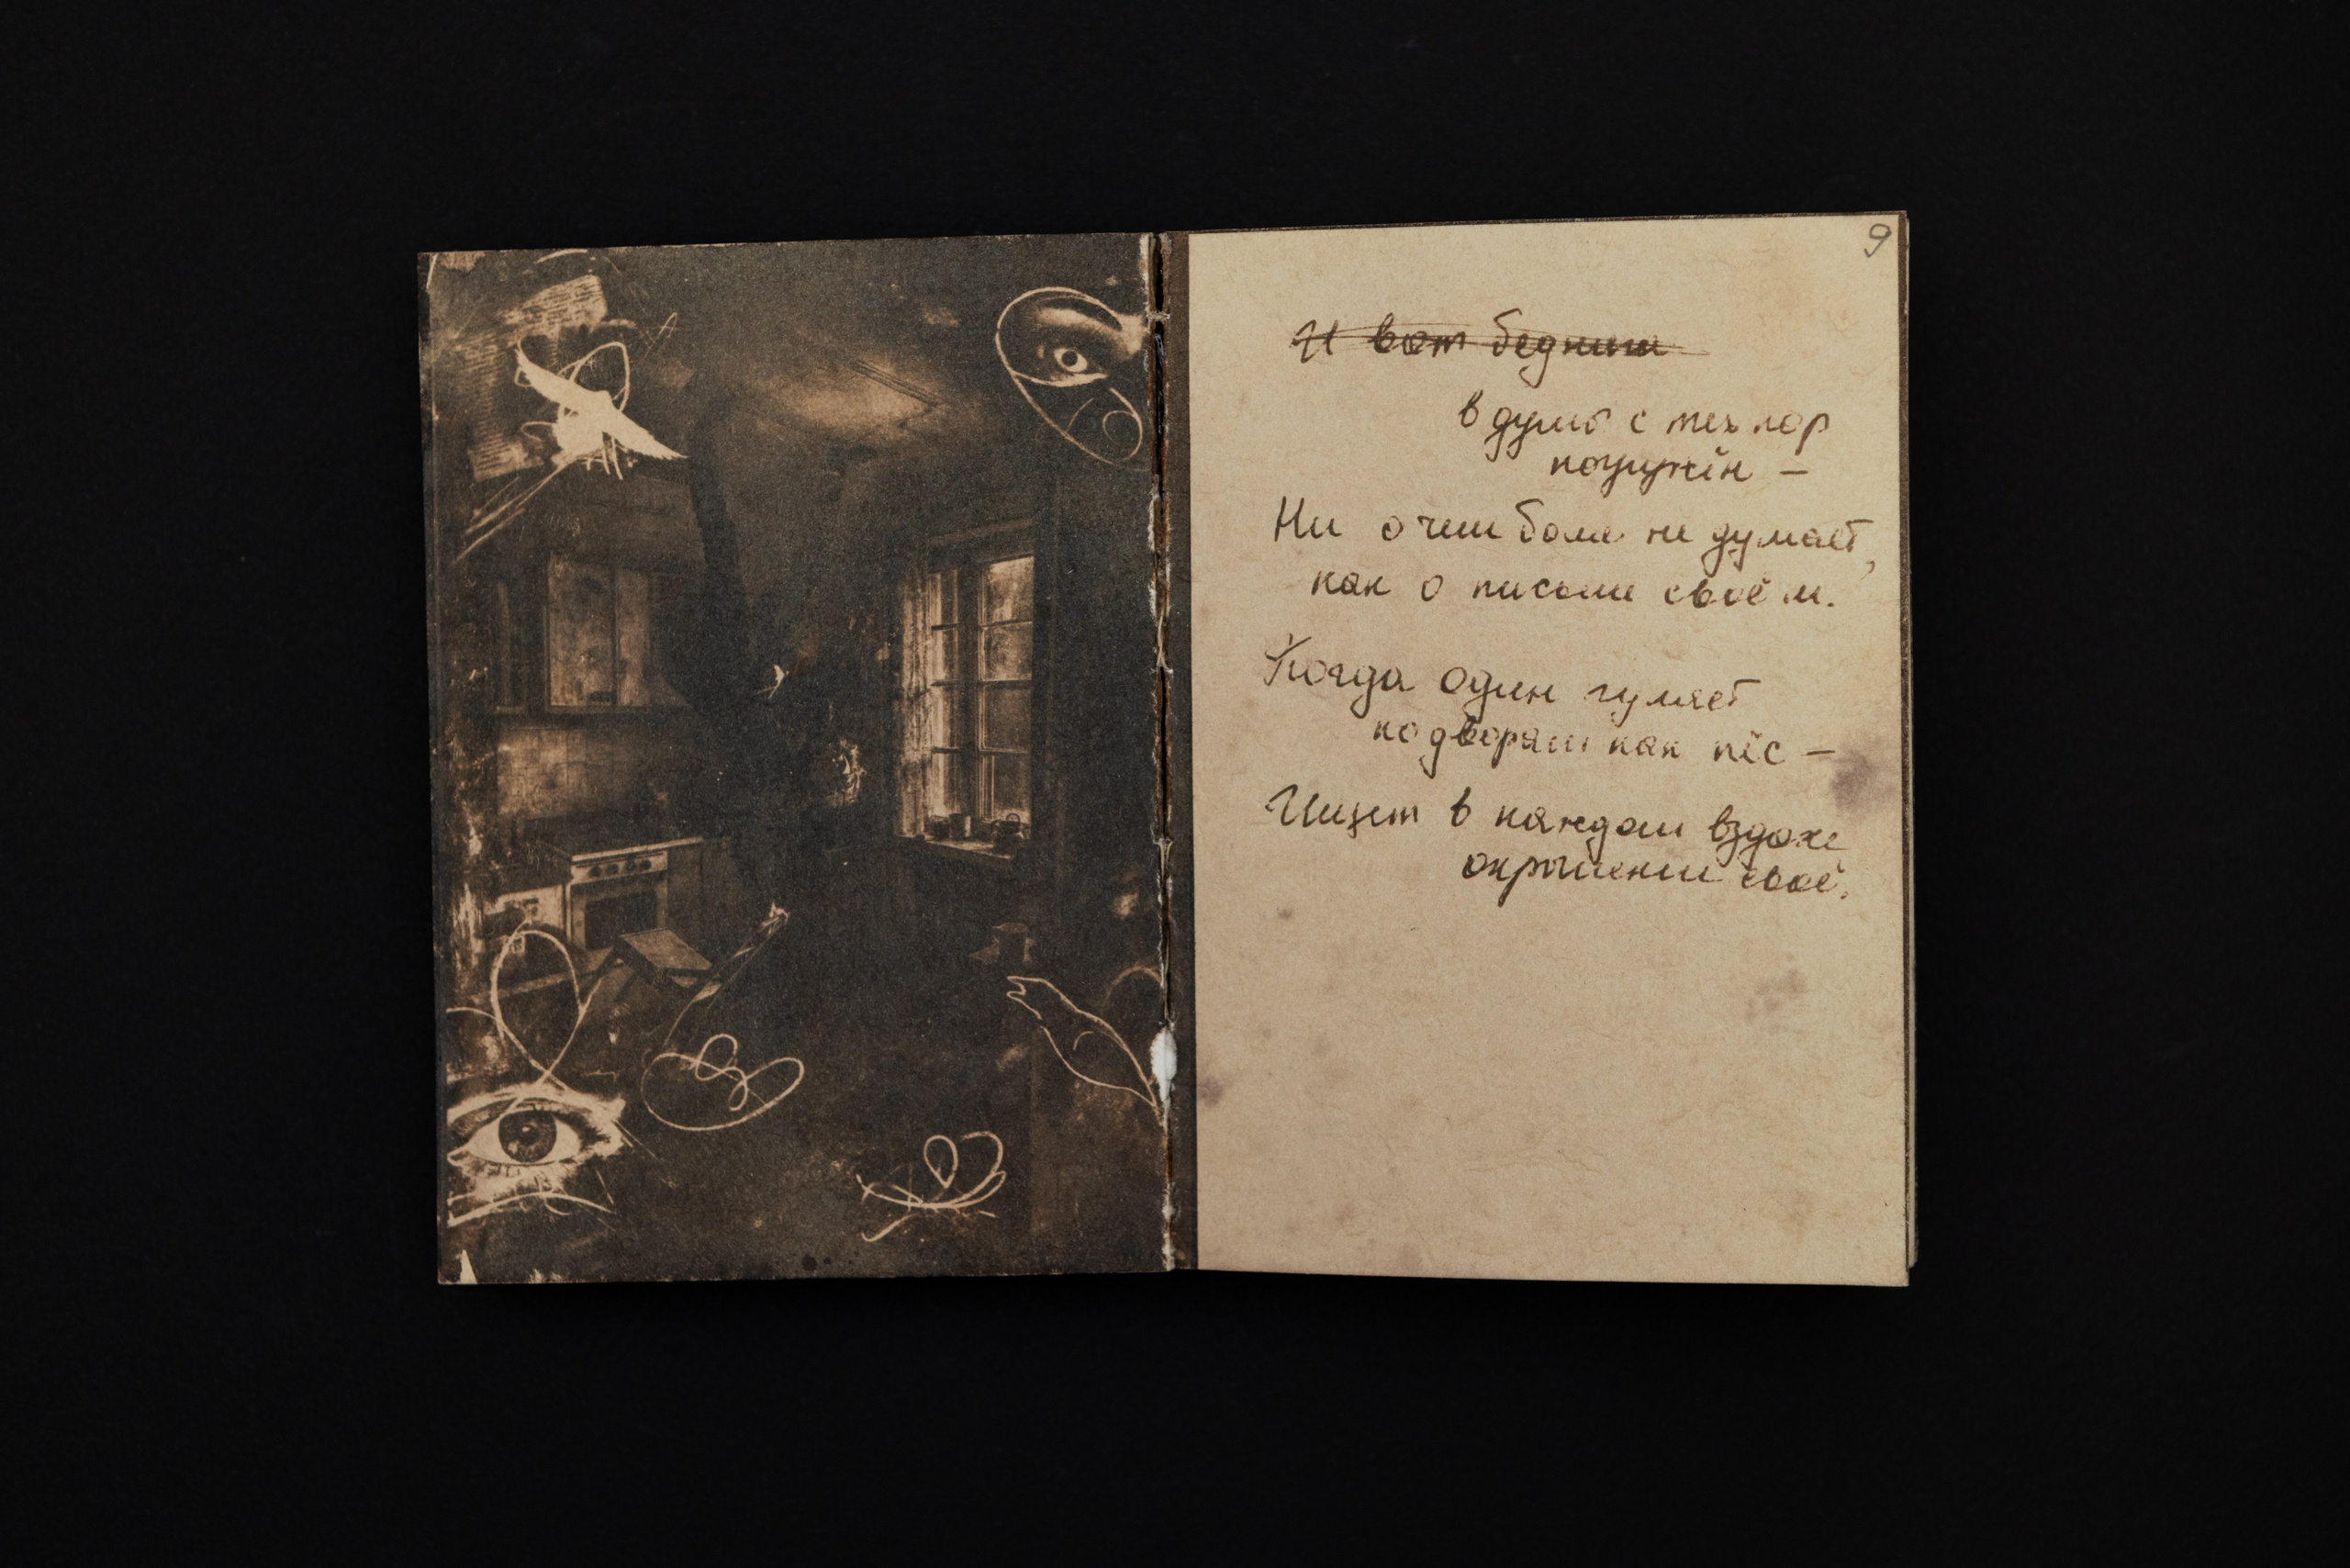 9
И вот бедним
в думы с тех пор
погружён —
Ни о чем боле не думает,
как о письме своём.
Когда один гуляет
по дворам как пёс —
Ищет в каждом вздохе
окрышении своё.